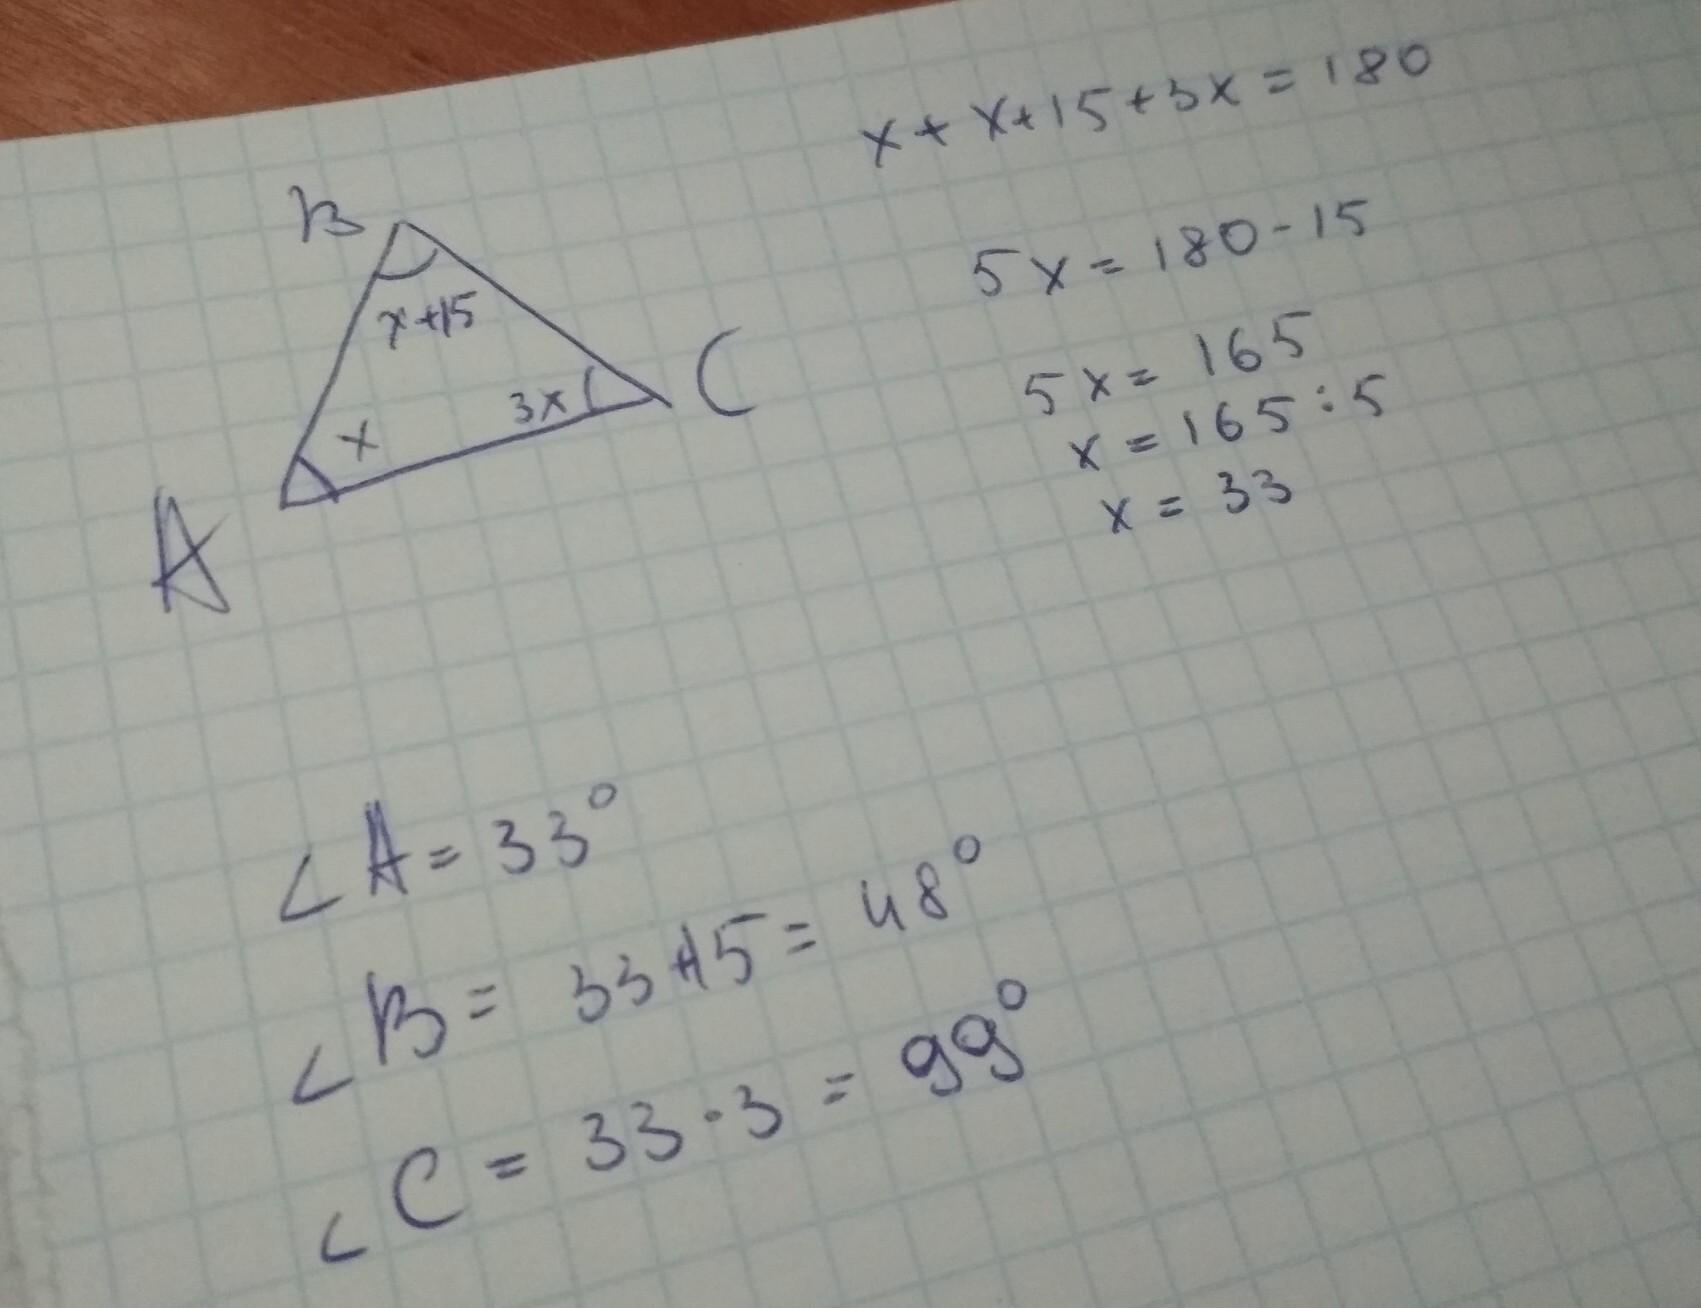 B
x+15
3x
C
x
A
x + x+15+3x = 180
5x = 180-15
5x = 165
x = 165:5
x = 33
∠A = 33°
∠B = 33+15 = 48°
∠C = 33·3 = 99°